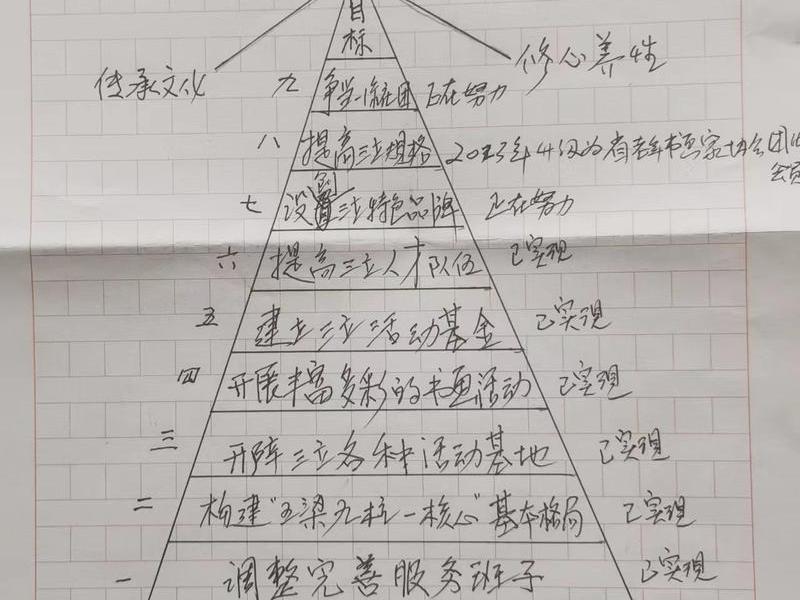 目
标
传承文化
修心养性
九 争当一流社团 正在努力
八 提高三立规格 2023年4级为省老年书画家协会团体
会员
七 设置创三立特色品牌 正在努力
六 提高三立人才队伍 已实现
五 建立三立活动基金 已实现
四 开展丰富多彩的书画活动 已实现
三 开辟三立各种活动基地 已实现
二 构建“五梁九柱一核心”基本格局 已实现
一 调整完善服务班子 已实现